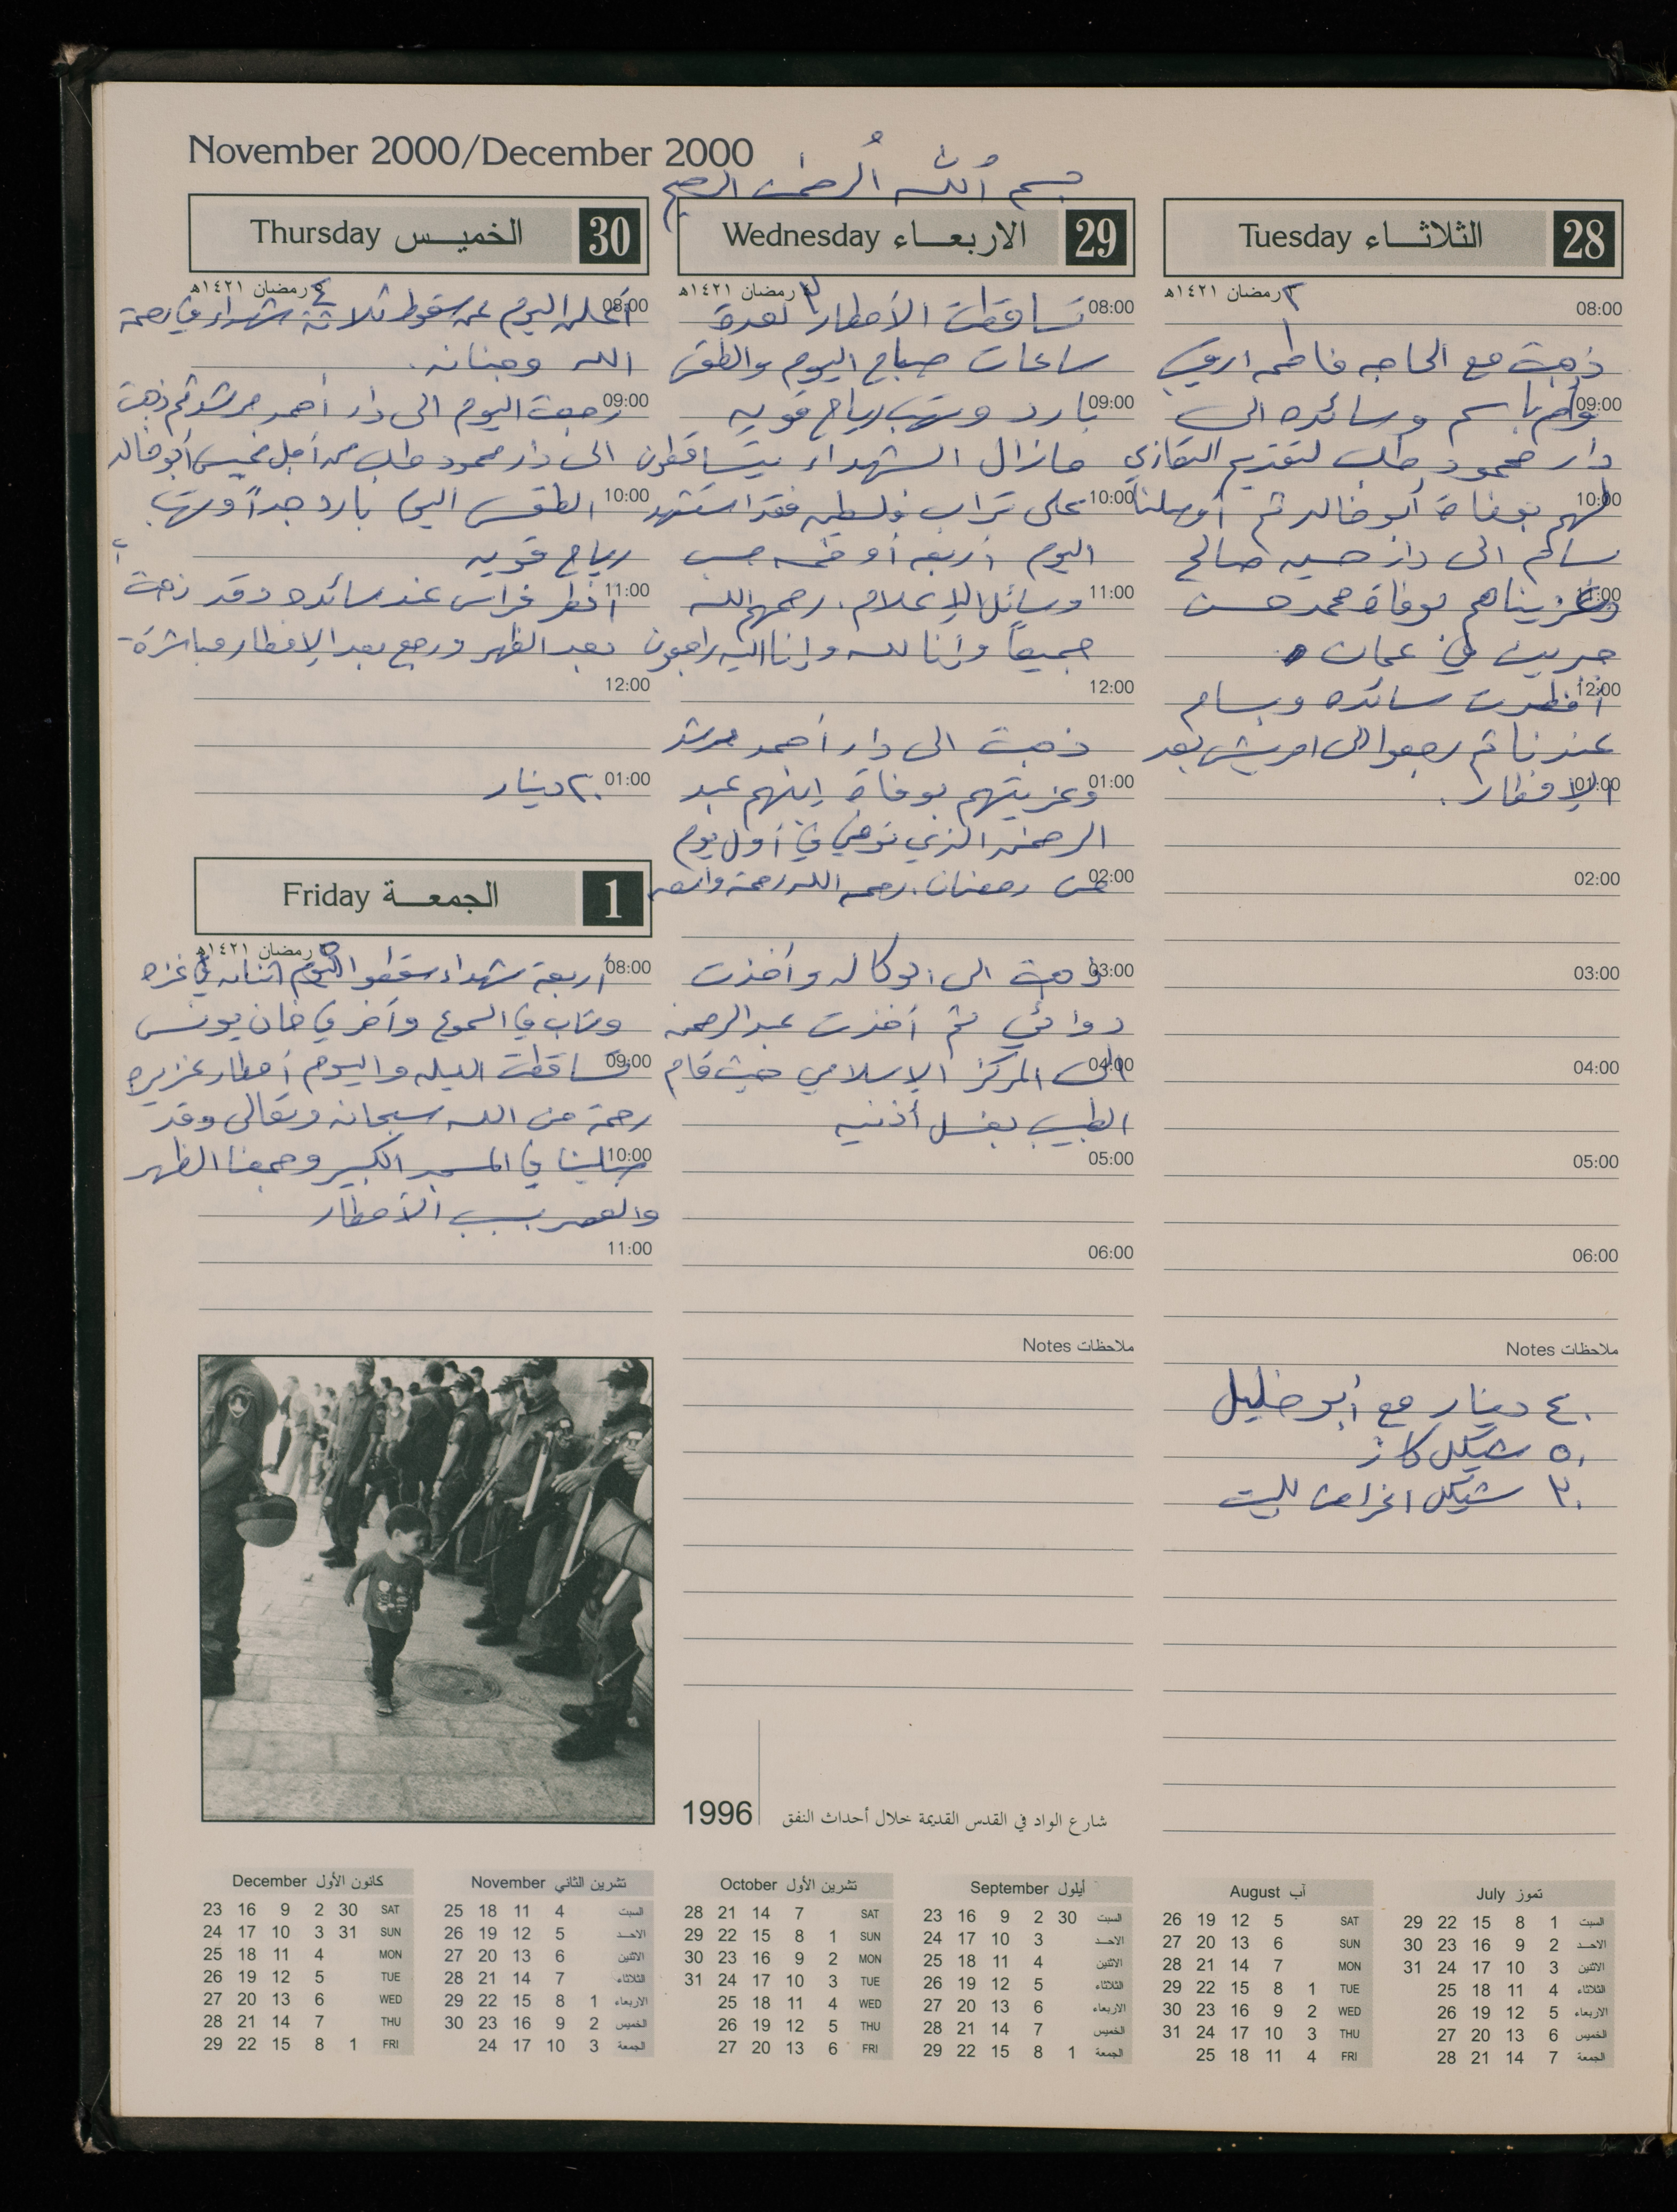 November 2000/December 2000
بسم الله الرحمن الرحيم
28 الثلاثـــاء Tuesday
٢ رمضان ١٤٢١هـ
08:00
ذهبت مع الحاجه فاطمه اريفي
09:00 وام باسم وسائده الى
دار محمود طلب لتقديم التعازي
10:00 لهم بوفاة أبو خالد ثم أوصلنا
سالم الى دار حسين صالح
11:00 وعزيناهم بوفاة محمد حسن
حريت في عمان
12:00 أفطرت سائده وبسام
عندنا ثم رجعوا الى امريش بعد
01:00 الإفطار.
02:00
03:00
04:00
05:00
06:00
ملاحظات Notes
٤٠ دينار مع أبو خليل
٥٠ شيكل كاز
٣٠ شيكل اغراض للبيت
29 الاربعـــاء Wednesday
٣ رمضان ١٤٢١هـ
08:00 تساقطت الأمطار لعدة
ساعات صباح اليوم والطقس
09:00 بارد وتهب رياح قويه
مازال الشهداء يتساقطون
10:00 على تراب فلسطين فقد استشهد
اليوم أربعه أو خمسه حسب
11:00 وسائل الإعلام. رحمهم الله
جميعاً وإنا لله وإنا اليه راجعون
12:00
ذهبت الى دار أحمد مرشد
01:00 وعزيتهم بوفاة إبنهم عبد
الرحمن الذي توفي في أول يوم
02:00 من رمضان. رحمه الله رحمة واسعه
03:00 ذهبت الى الوكاله وأخذت
دوائي ثم أخذت عبد الرحمن
04:00 الى المركز الإسلامي حيث قام
الطبيب بغسل أذنيه
05:00
06:00
ملاحظات Notes
30 الخميـــس Thursday
٤ رمضان ١٤٢١هـ
08:00 أعلن اليوم عن سقوط ثلاثة شهداء في رحمة
الله وجنانه.
09:00 رجعت اليوم الى دار أحمد مرشد ثم ذهبت
الى دار محمود طلب من أجل خميس أبو خالد
10:00 الطقس اليوم بارد جداً وتهب
رياح قويه
11:00 افطر فراس عند سائده وقد ذهبت
بعد الظهر ورجع بعد الإفطار مباشرة
12:00
01:00 ٢٠ دينار
1 الجمعـــة Friday
٥ رمضان ١٤٢١هـ
08:00 أربعة شهداء سقطوا اليوم اثنان في غزه
وشاب في السموع وآخر في خان يونس
09:00 تساقطت الليله واليوم أمطار غزيره
رحمة من الله سبحانه وتعالى وقد
10:00 صلينا في المسجد الكبير وجمعنا الظهر
والعصر بسبب الأمطار
11:00
1996 شارع الواد في القدس القديمة خلال أحداث النفق
تموز July
29 22 15 8 1 السبت
30 23 16 9 2 الاحـد
31 24 17 10 3 الاثنين
25 18 11 4 الثلاثاء
26 19 12 5 الاربعاء
27 20 13 6 الخميس
28 21 14 7 الجمعة
آب August
26 19 12 5 SAT
27 20 13 6 SUN
28 21 14 7 MON
29 22 15 8 1 TUE
30 23 16 9 2 WED
31 24 17 10 3 THU
25 18 11 4 FRI
أيلول September
23 16 9 2 30 السبت
24 17 10 3 الاحـد
25 18 11 4 الاثنين
26 19 12 5 الثلاثاء
27 20 13 6 الاربعاء
28 21 14 7 الخميس
29 22 15 8 1 الجمعة
تشرين الأول October
28 21 14 7 SAT
29 22 15 8 1 SUN
30 23 16 9 2 MON
31 24 17 10 3 TUE
25 18 11 4 WED
26 19 12 5 THU
27 20 13 6 FRI
تشرين الثاني November
25 18 11 4 السبت
26 19 12 5 الاحـد
27 20 13 6 الاثنين
28 21 14 7 الثلاثاء
29 22 15 8 1 الاربعاء
30 23 16 9 2 الخميس
24 17 10 3 الجمعة
كانون الأول December
23 16 9 2 30 SAT
24 17 10 3 31 SUN
25 18 11 4 MON
26 19 12 5 TUE
27 20 13 6 WED
28 21 14 7 THU
29 22 15 8 1 FRI